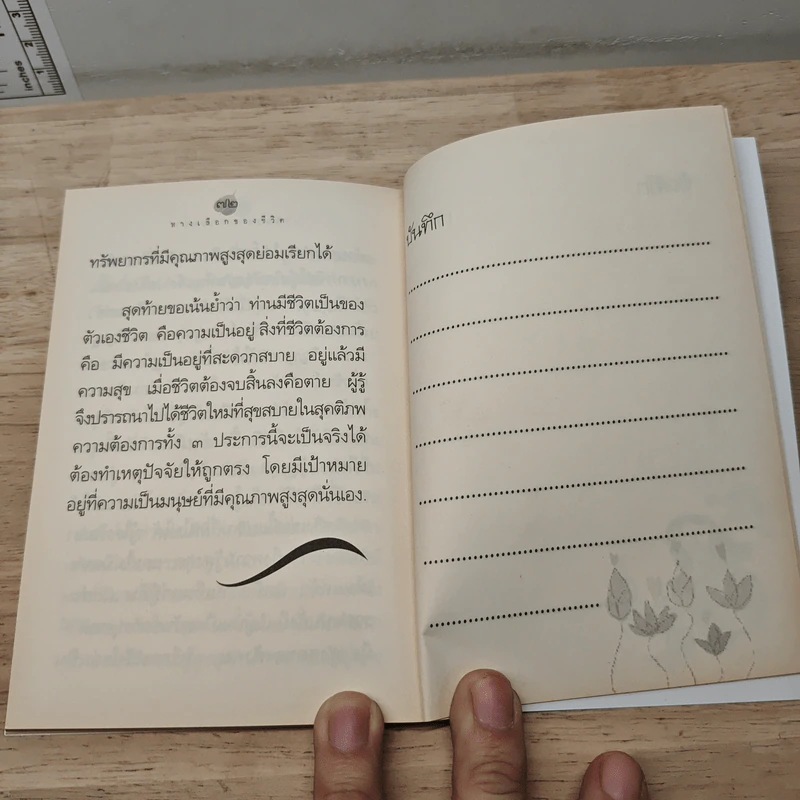 ๗๒
ทางเลือกของชีวิต
ทรัพยากรที่มีคุณภาพสูงสุดย่อมเรียกได้
สุดท้ายขอเน้นย้ำว่า ท่านมีชีวิตเป็นของ
ตัวเองชีวิต คือความเป็นอยู่ สิ่งที่ชีวิตต้องการ
คือ มีความเป็นอยู่ที่สะดวกสบาย อยู่แล้วมี
ความสุข เมื่อชีวิตต้องจบสิ้นลงคือตาย ผู้รู้
จึงปรารถนาไปได้ชีวิตใหม่ที่สุขสบายในสุคติภพ
ความต้องการทั้ง ๓ ประการนี้จะเป็นจริงได้
ต้องทำเหตุปัจจัยให้ถูกตรง โดยมีเป้าหมาย
อยู่ที่ความเป็นมนุษย์ที่มีคุณภาพสูงสุดนั่นเอง.
บันทึก
inches
1
2
3